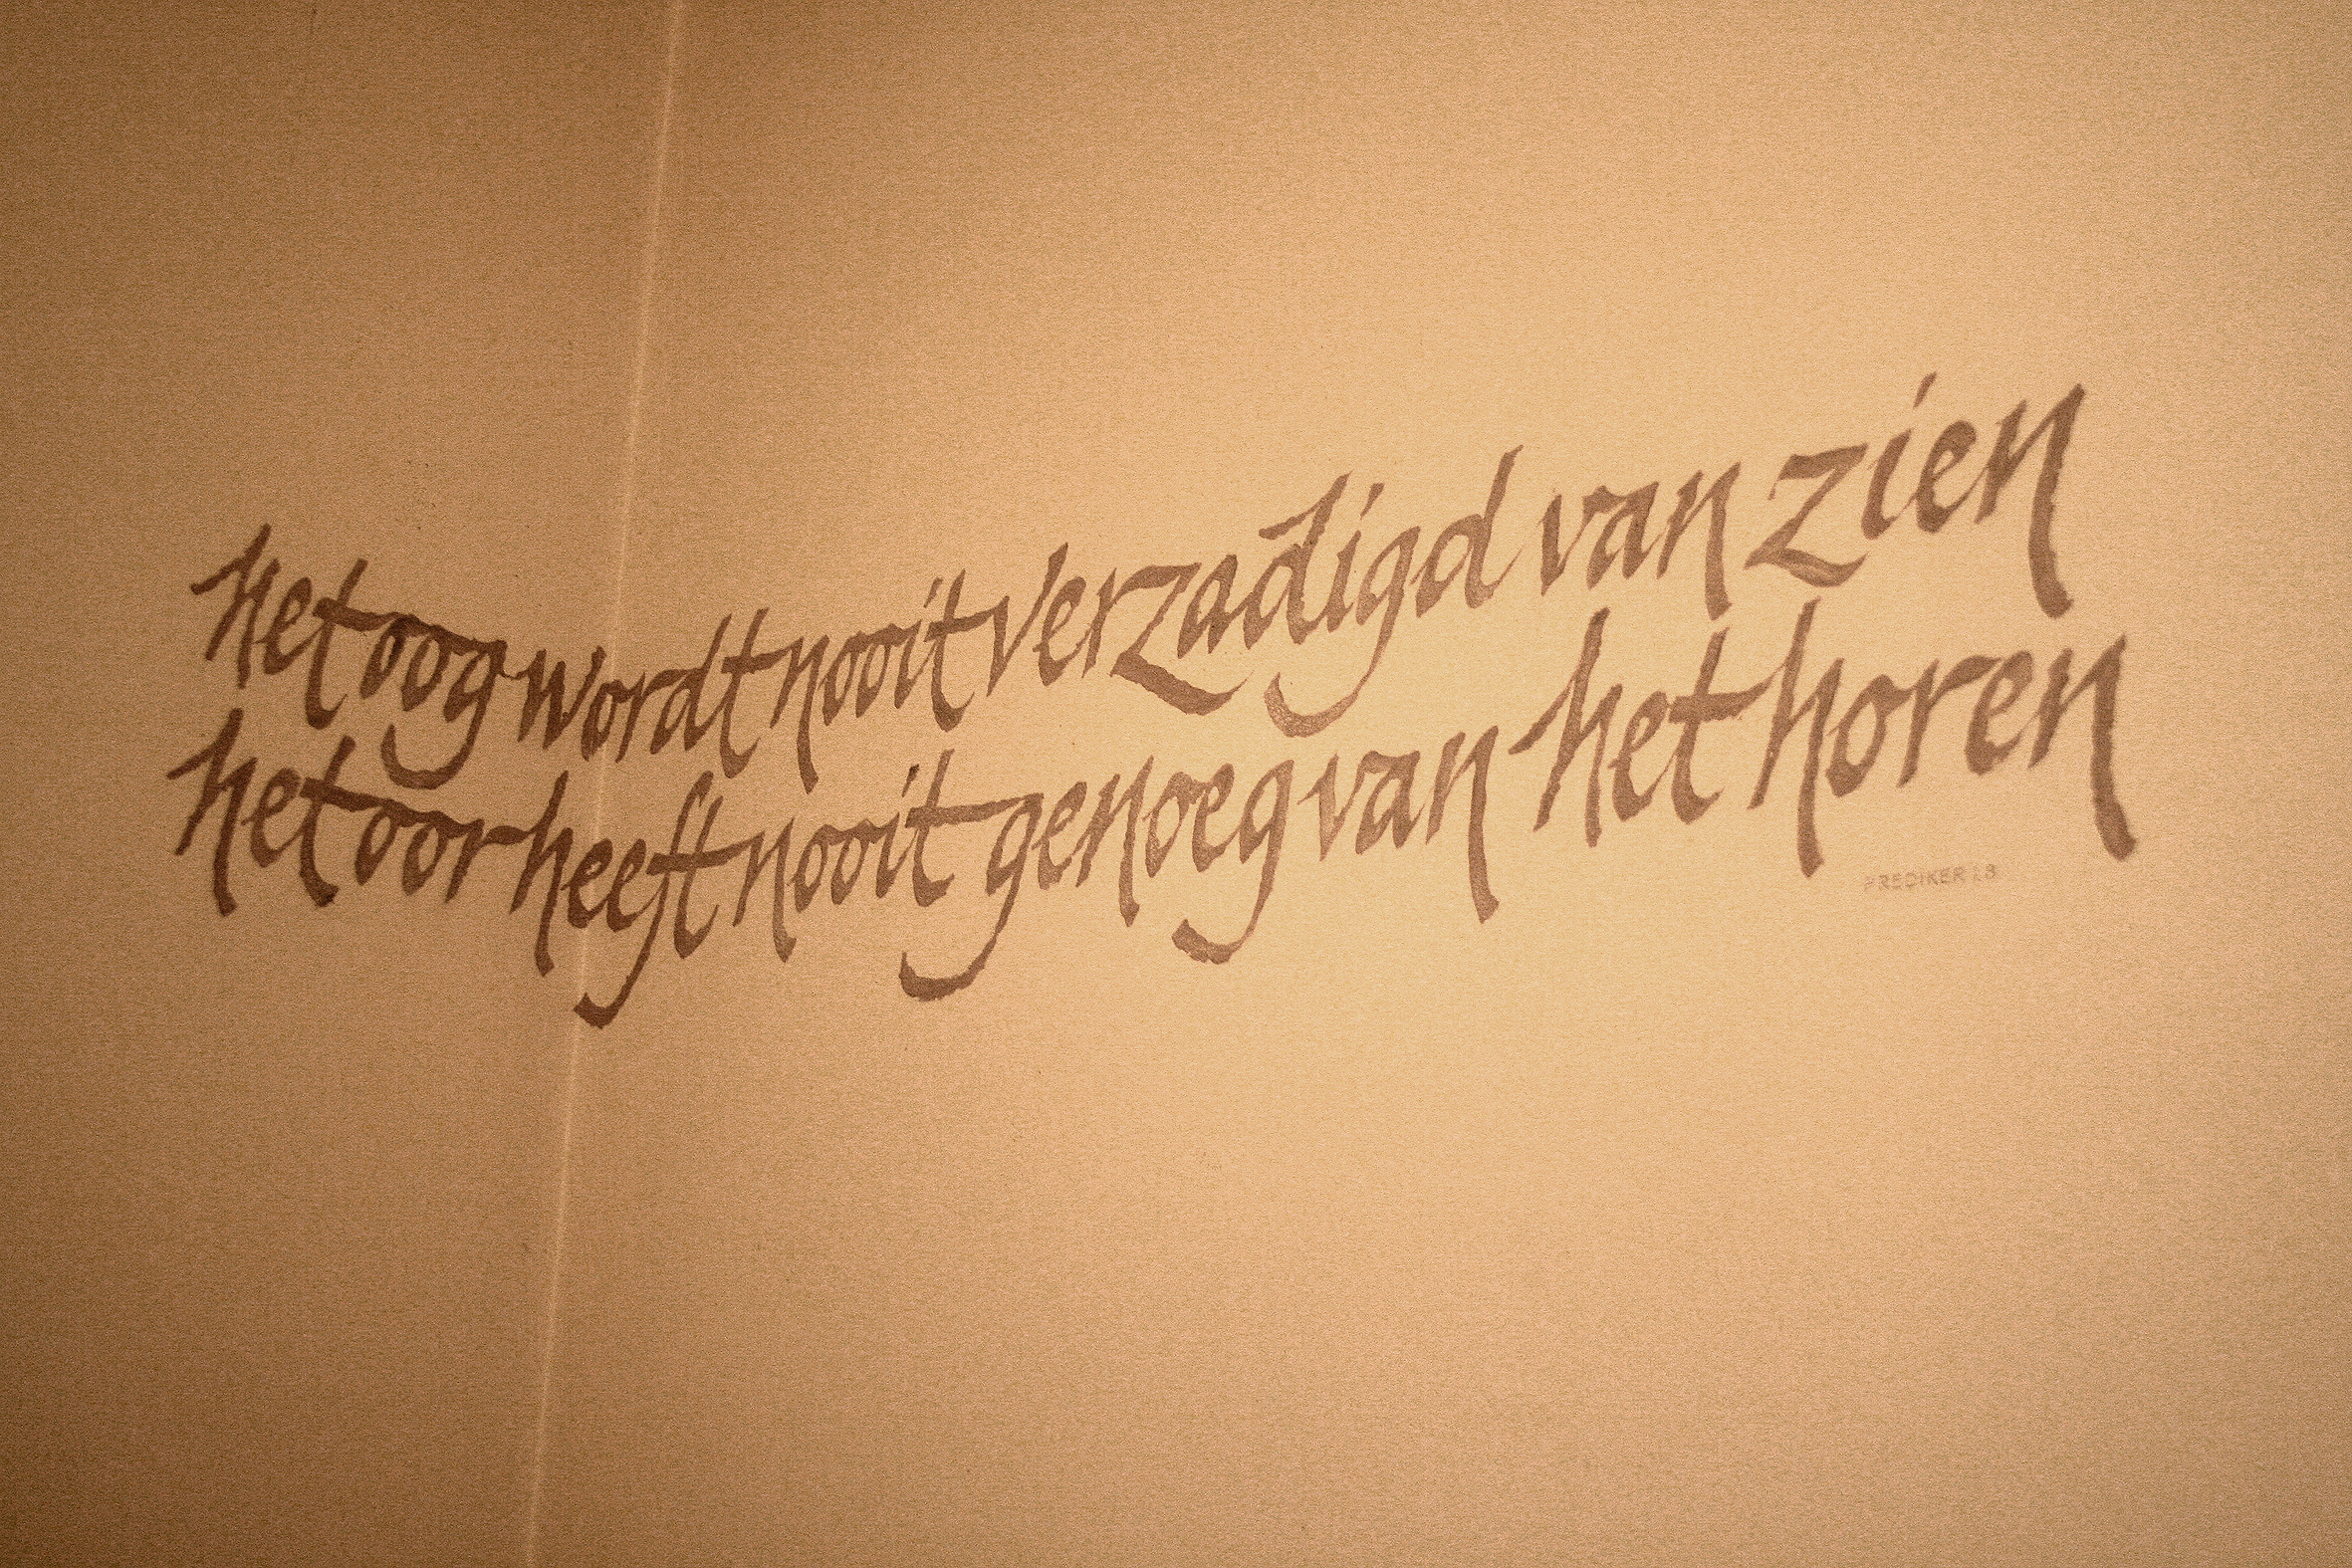 het oog wordt nooit verzadigd van zien
het oor heeft nooit genoeg van het horen
PREDIKER 1 8